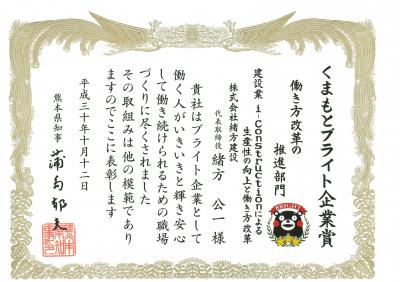 くまもとブライト企業賞
働き方改革の
推進部門
建設業 i-Constructionによる
生産性の向上と働き方改革
株式会社緒方建設
代表取締役 緒方 公一 様
貴社はブライト企業として
働く人がいきいきと輝き安心
して働き続けられるための職場
づくりに尽くされました
その取組みは他の模範であり
ますのでここに表彰します
平成三十年十月十二日
熊本県知事 蒲島郁夫
BRIGHT